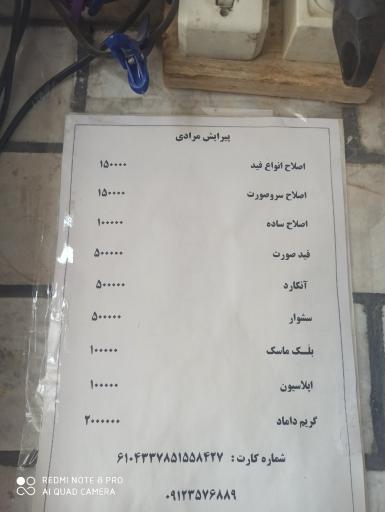 پیرایش مرادی
اصلاح انواع فید ۱۵۰۰۰۰
اصلاح سروصورت ۱۵۰۰۰۰
اصلاح ساده ۱۰۰۰۰۰
فید صورت ۵۰۰۰۰۰
آنکارد ۵۰۰۰۰۰
سشوار ۵۰۰۰۰۰
بلک ماسک ۱۰۰۰۰۰
اپلاسیون ۱۰۰۰۰۰
گریم داماد ۲۰۰۰۰۰۰
شماره کارت : ۶۱۰۴۳۳۷۸۵۱۵۵۸۴۲۷
۰۹۱۲۳۵۷۶۸۸۹
REDMI NOTE 8 PRO
AI QUAD CAMERA